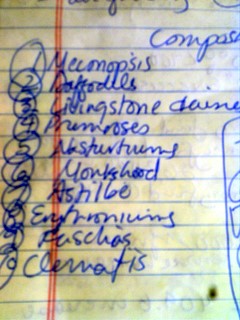 Compass
1 Meconopsis
2 Daffodils
3 Livingstone daine
4 Primroses
5 Nasturtiums
6 Monkshood
7 Astilbe
8 Erythroniums
9 Fuschias
Clematis